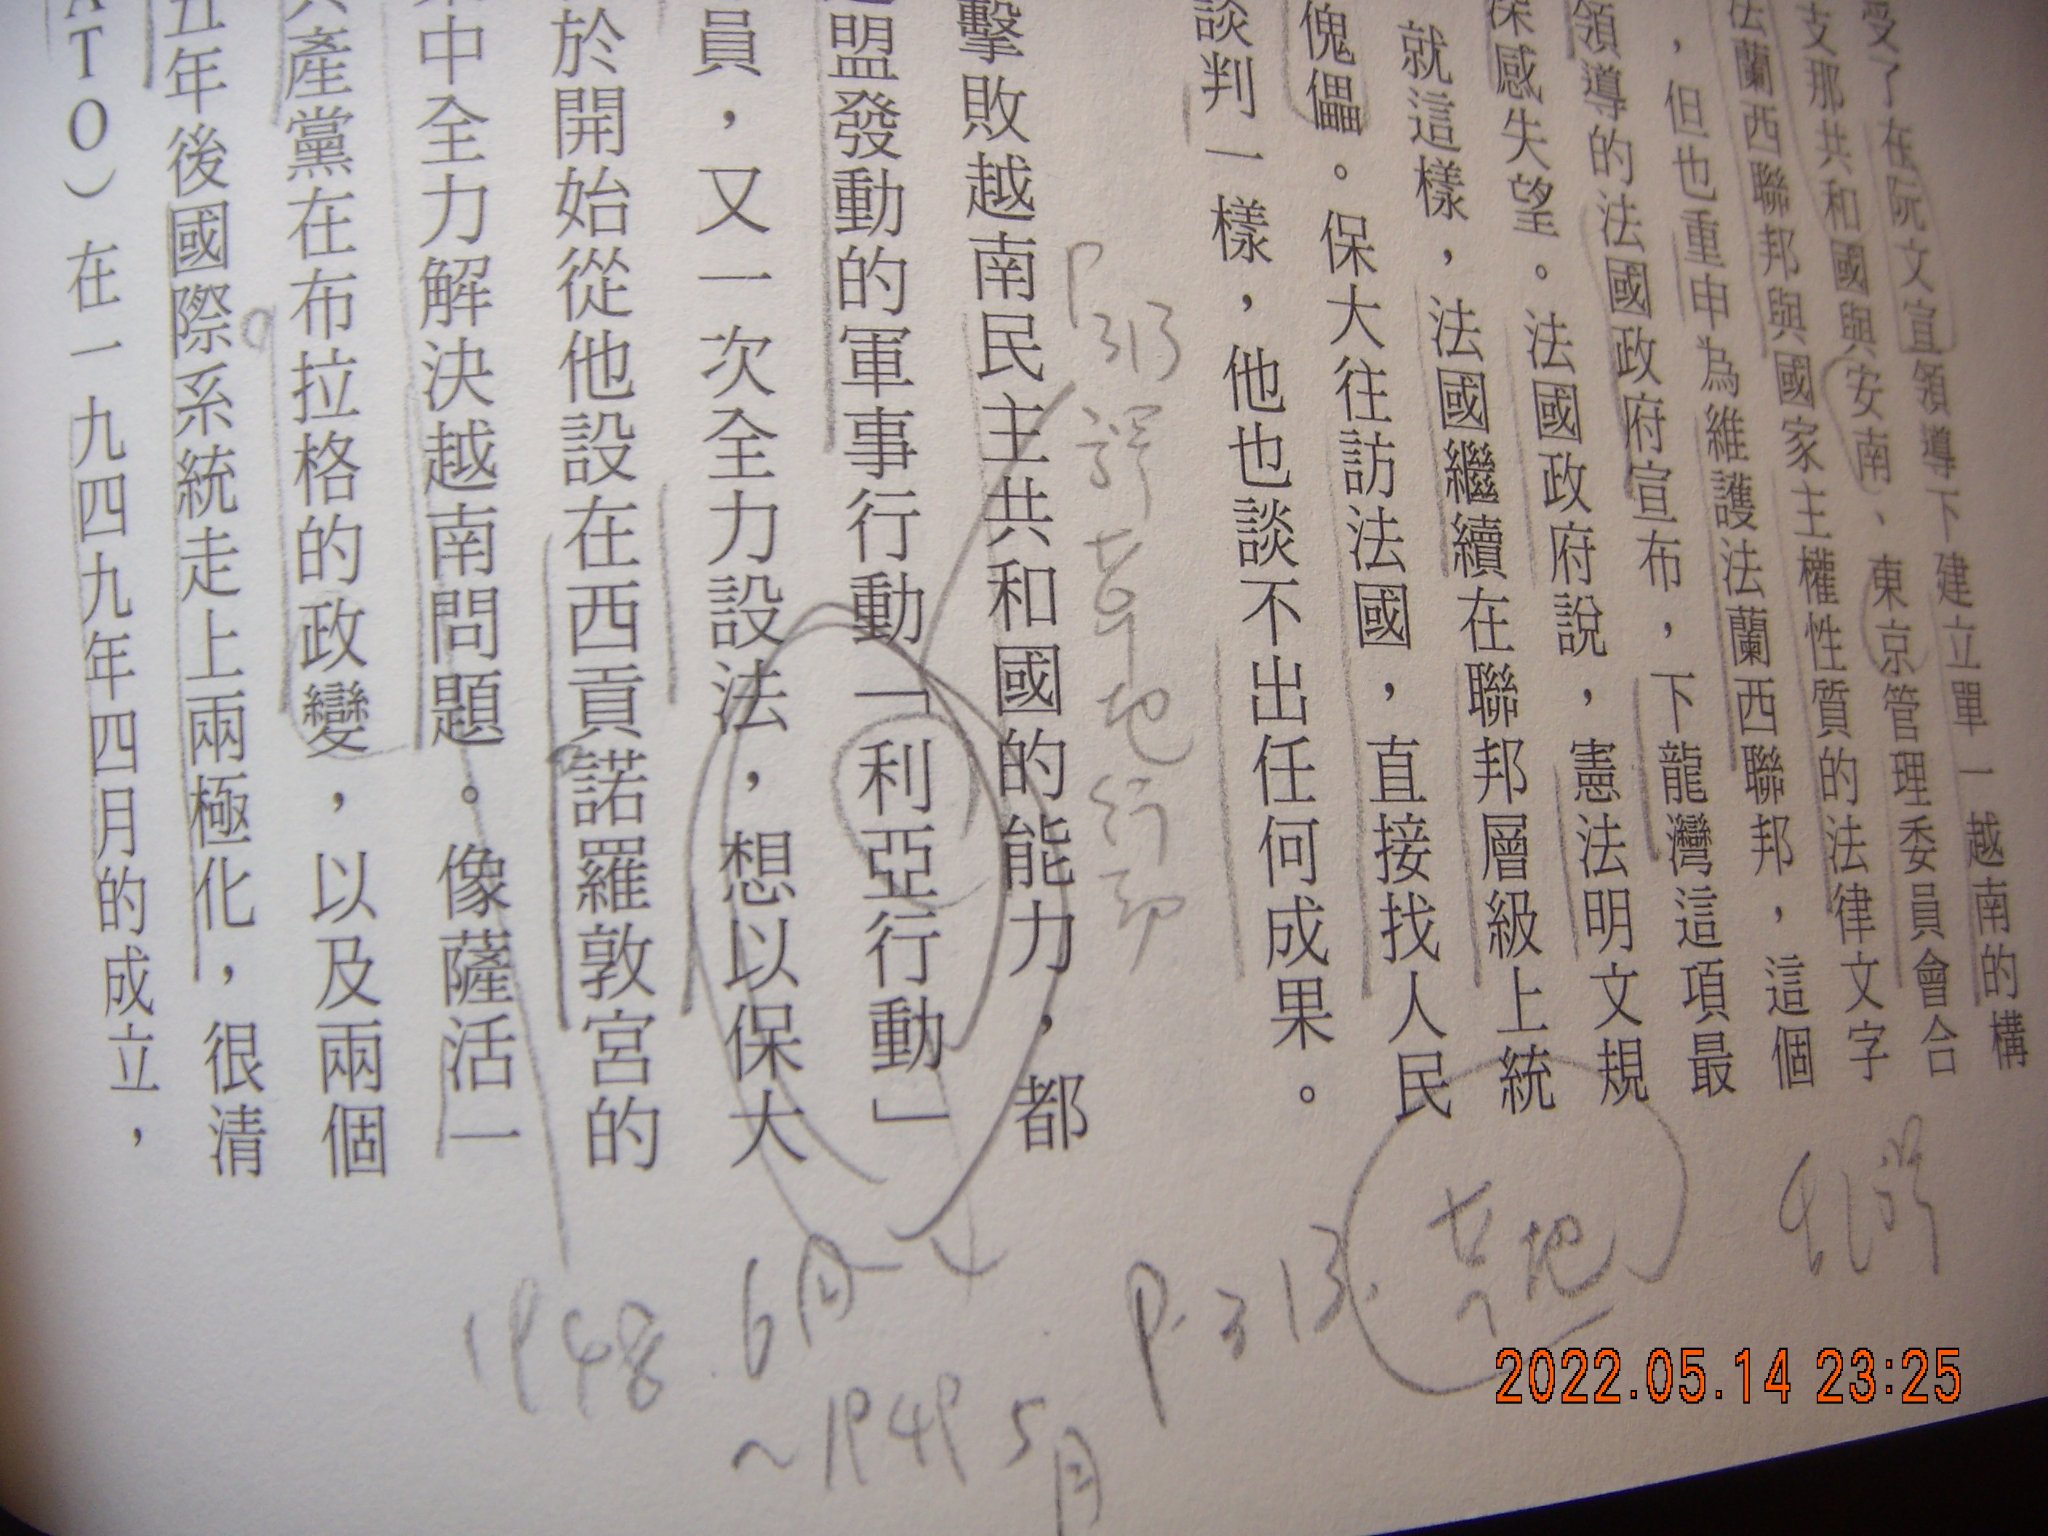 受了在阮文宣領導下建立單一越南的構
支那共和國與安南、東京管理委員會合
法蘭西聯邦與國家主權性質的法律文字
，但也重申為維護法蘭西聯邦，這個
領導的法國政府宣布，下龍灣這項最
深感失望。法國政府說，憲法明文規
就這樣，法國繼續在聯邦層級上統
傀儡。保大往訪法國，直接找人民
談判一樣，他也談不出任何成果。
擊敗越南民主共和國的能力，都
盟發動的軍事行動「利亞行動」
員，又一次全力設法，想以保大
於開始從他設在西貢諾羅敦宮的
中全力解決越南問題。像薩活一
共產黨在布拉格的政變，以及兩個
五年後國際系統走上兩極化，很清
ATO）在一九四九年四月的成立，
P313
譯
地行動
P.313.
地
1948.6月
~1949 5月
2022.05.14 23:25